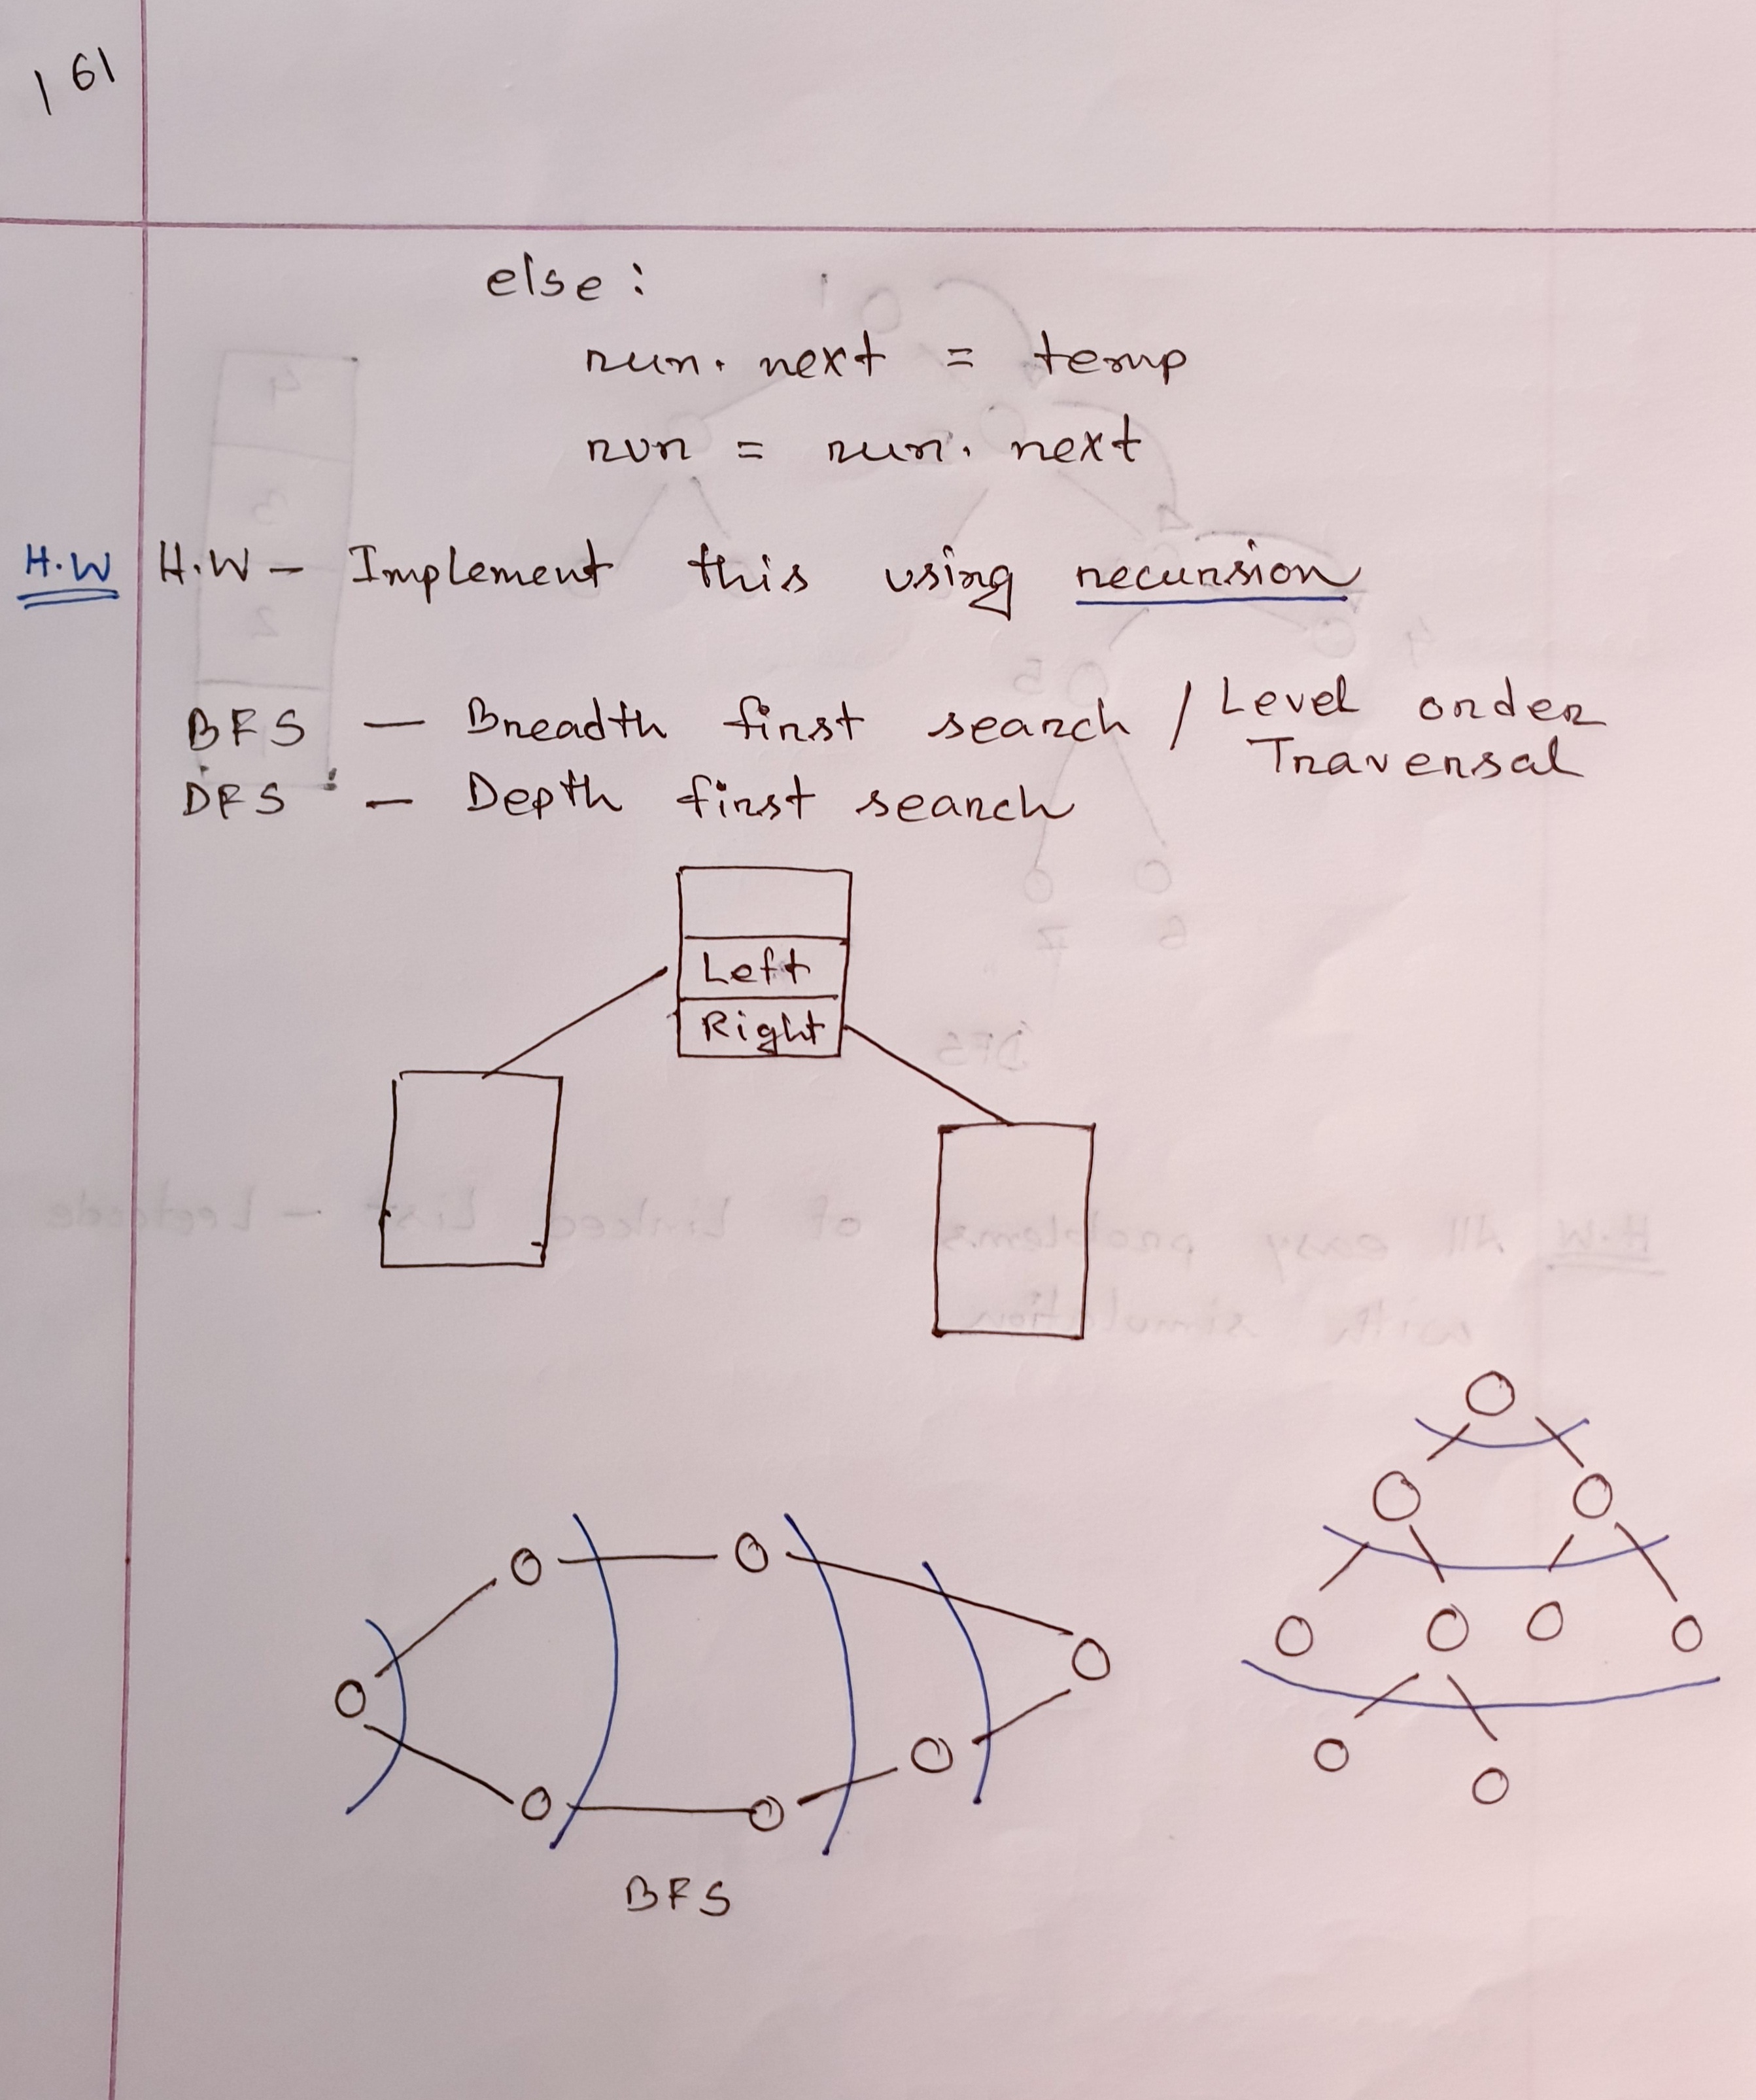 161
else :
run. next = temp
run = run. next
H.W H.W - Implement this using recursion
BFS - Breadth first search / Level order Traversal
DFS - Depth first search
Left
Right
BFS